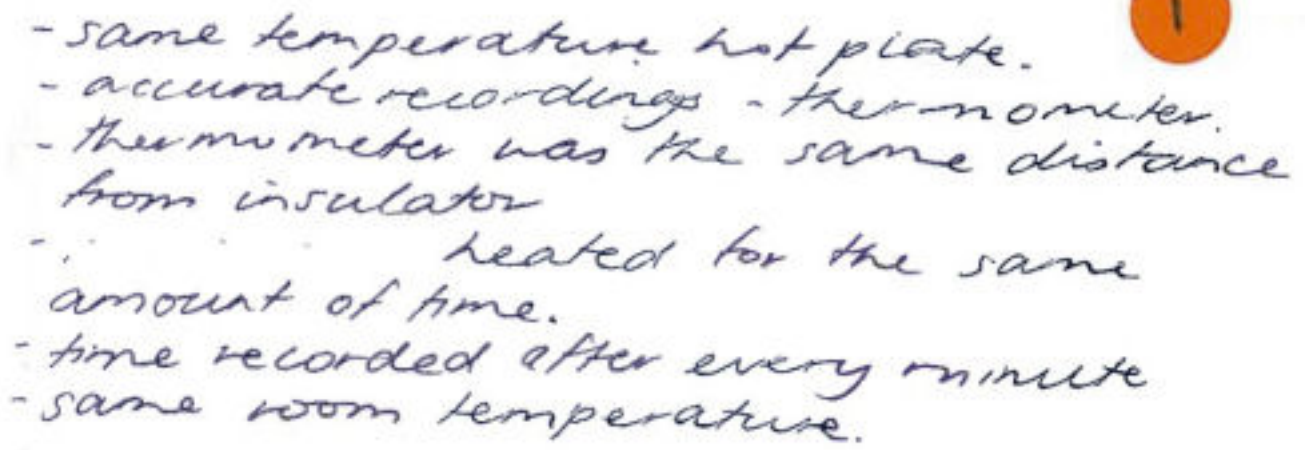 1
- same temperature hot plate.
- accurate recordings - thermometer.
- thermometer was the same distance
from insulator
- heated for the same
amount of time.
- time recorded after every minute
- same room temperature.